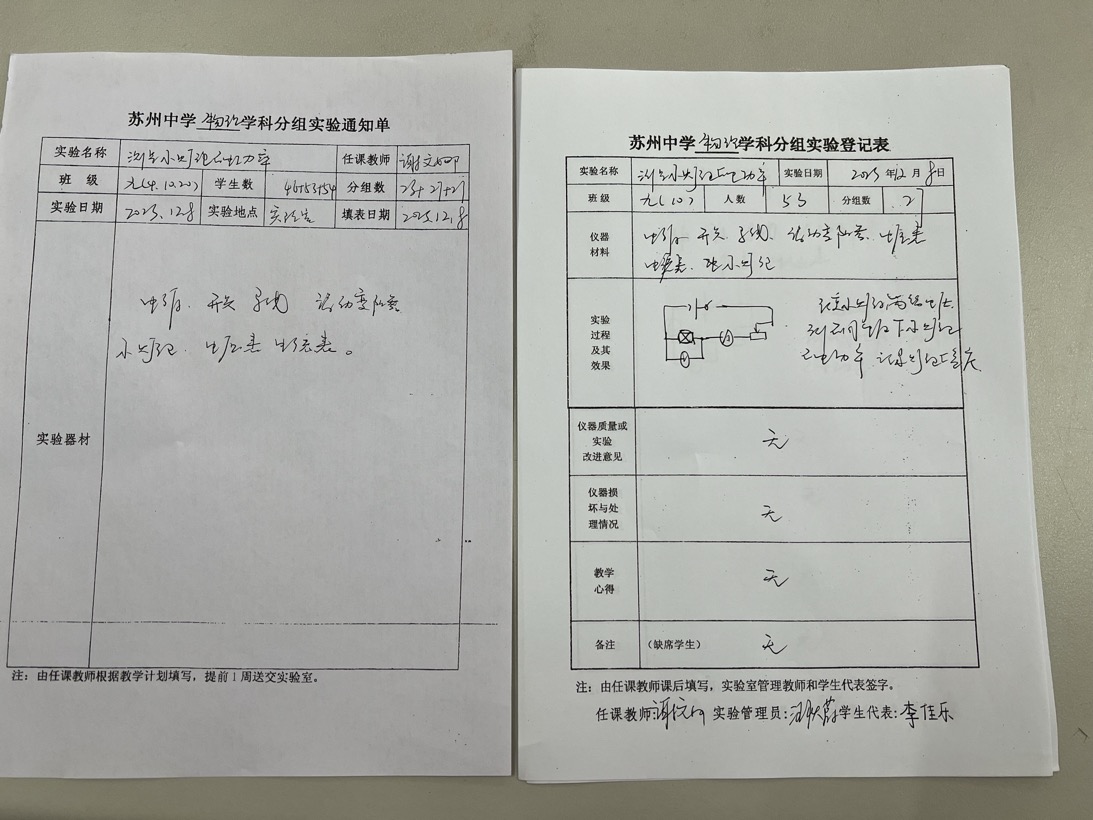 苏州中学 物理 学科分组实验通知单
实验名称 测定小灯泡的电功率 任课教师
班 级 九(4.10.20) 学生数 46+53+54 分组数 23+27+27
实验日期 2025.12.8 实验地点 实验室 填表日期 2025.12.8
实验器材
电源、开关 导线 滑动变阻器
小灯泡、电压表 电流表。
注：由任课教师根据教学计划填写，提前1周送交实验室。
苏州中学 物理 学科分组实验登记表
实验名称 测定小灯泡的电功率 实验日期 2025年12月8日
班 级 九(10) 人数 53 分组数 27
仪器
材料
电源 开关 导线、滑动变阻器、电压表
电流表、小灯泡
实验
过程
及其
效果
A
V
小灯泡两端电压
不同电压下小灯泡
电功率
仪器质量或
实验
改进意见
无
仪器损
坏与处
理情况
无
教学
心得
无
备注 （缺席学生） 无
注：由任课教师课后填写，实验室管理教师和学生代表签字。
任课教师: 实验管理员: 学生代表: 李佳乐